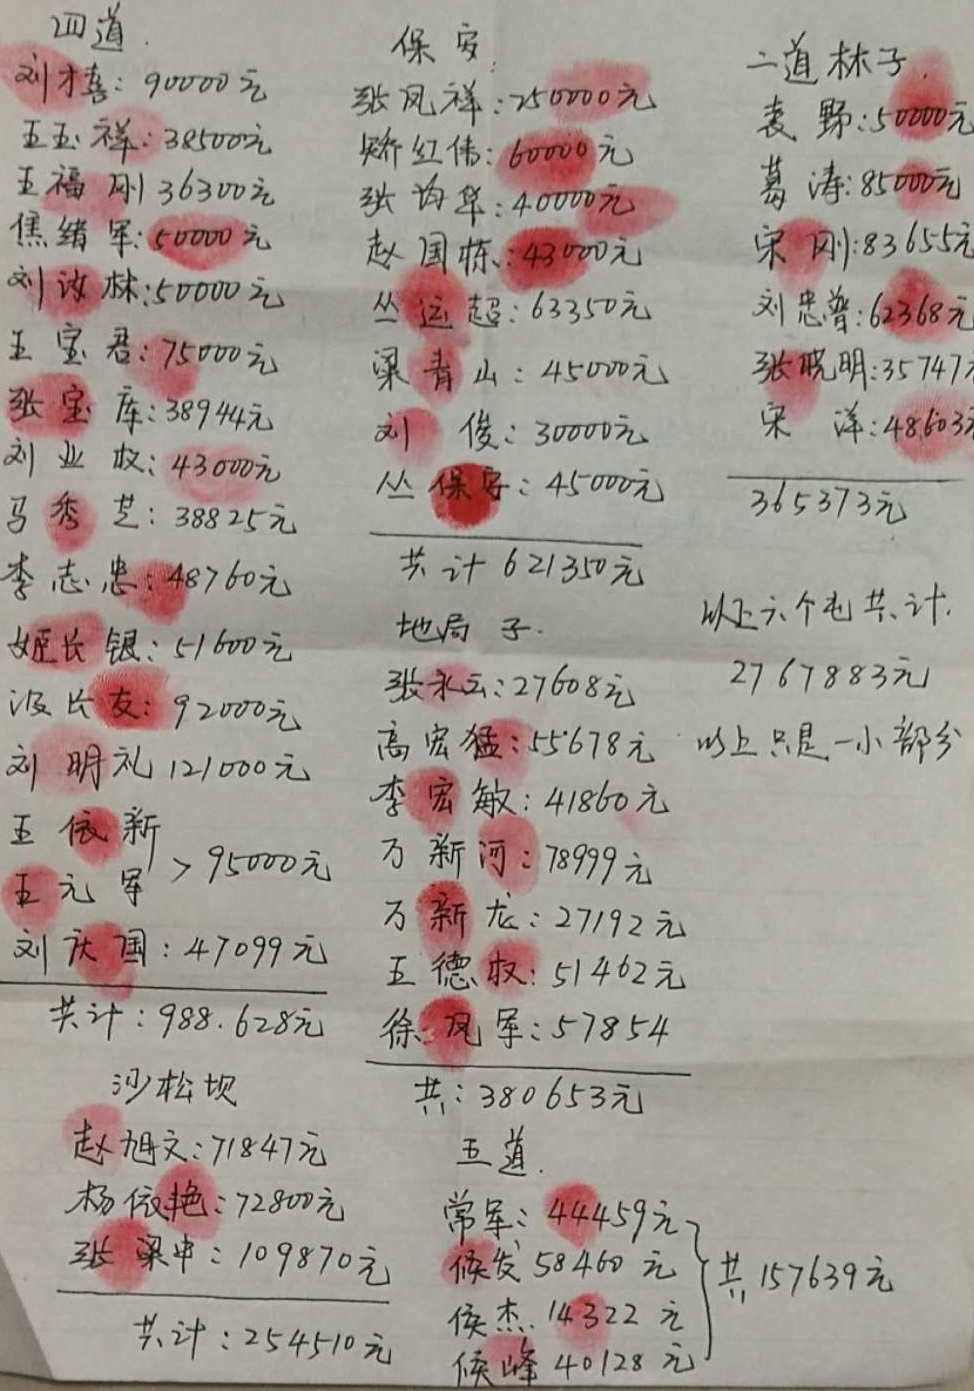 四道.
刘才喜: 90000元
王玉祥: 38500元
王福刚 36300元
焦绪军: 50000元
刘汝林: 50000元
王宝君: 75000元
张宝库: 38944元
刘业权: 43000元
马秀芝: 38825元
李志忠: 48760元
姬长银: 51600元
友: 92000元
刘明礼 121000元
王依新
王元军 > 95000元
刘庆国: 47099元
共计: 988.628元
沙松坝
赵旭文: 71847元
杨依艳: 72800元
张梁申: 109870元
共计: 254510元
保安:
张凤祥: 250000元
矫红伟: 60000元
张海华: 40000元
赵国栋: 43000元
丛远超: 63350元
梁青山: 45000元
刘俊: 30000元
丛保安: 45000元
共计 621350元
地局子.
张永云: 27608元
高宏猛: 55678元
李宏敏: 41860元
万新河: 78999元
万新龙: 27192元
王德权: 51462元
徐凤军: 57854
共: 380653元
五道.
常军: 44459元
候发 58460元
侯杰. 14322元
候峰 40128元
共 157639元
二道林子.
袁野: 50000元
葛涛: 85000元
宋刚: 83655元
刘忠普: 62368元
张晓明: 35747
宋洋: 48603元
365373元
以上六个屯共计.
2767883元
以上只是一小部分